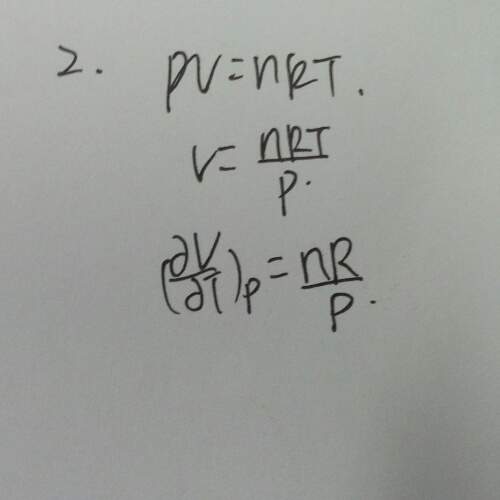 2. PV=nRT.
V=nRT/P.
(∂V/∂T)_P=nR/P.